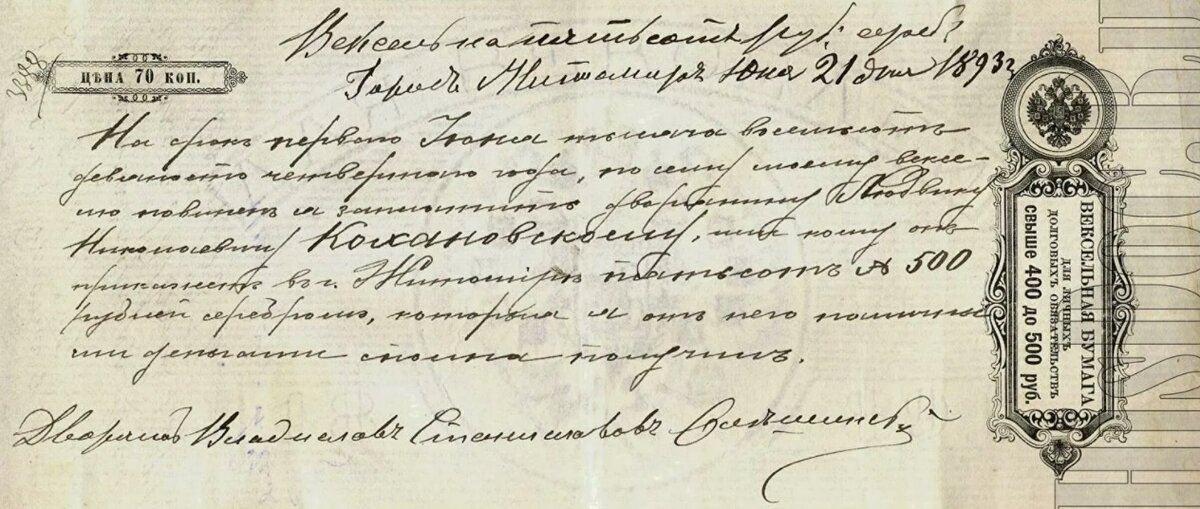 Вексель на пятьсотъ руб. сереб.
Городъ Житомиръ Юня 21 дня 1893 г
ЦѢНА 70 КОП.
На срокъ первого Іюня тысяча восемьсотъ
девяносто четвертаго года, по сему моему вексе-
лю повиненъ я заплатить дворянину Людвику
Николаевичу Кохановскому, или кому онъ
прикажетъ въ г. Житомірѣ пятьсотъ 500
рублей серебромъ, которыя я отъ него наличны
ми деньгами сполна получилъ.
Дворянинъ Владиславъ Станиславовъ
ВЕКСЕЛЬНАЯ БУМАГА
ДЛЯ ЛИЧНЫХЪ
ДОЛГОВЫХЪ ОБЯЗАТЕЛЬСТВЪ
СВЫШЕ 400 ДО 500 РУБ.